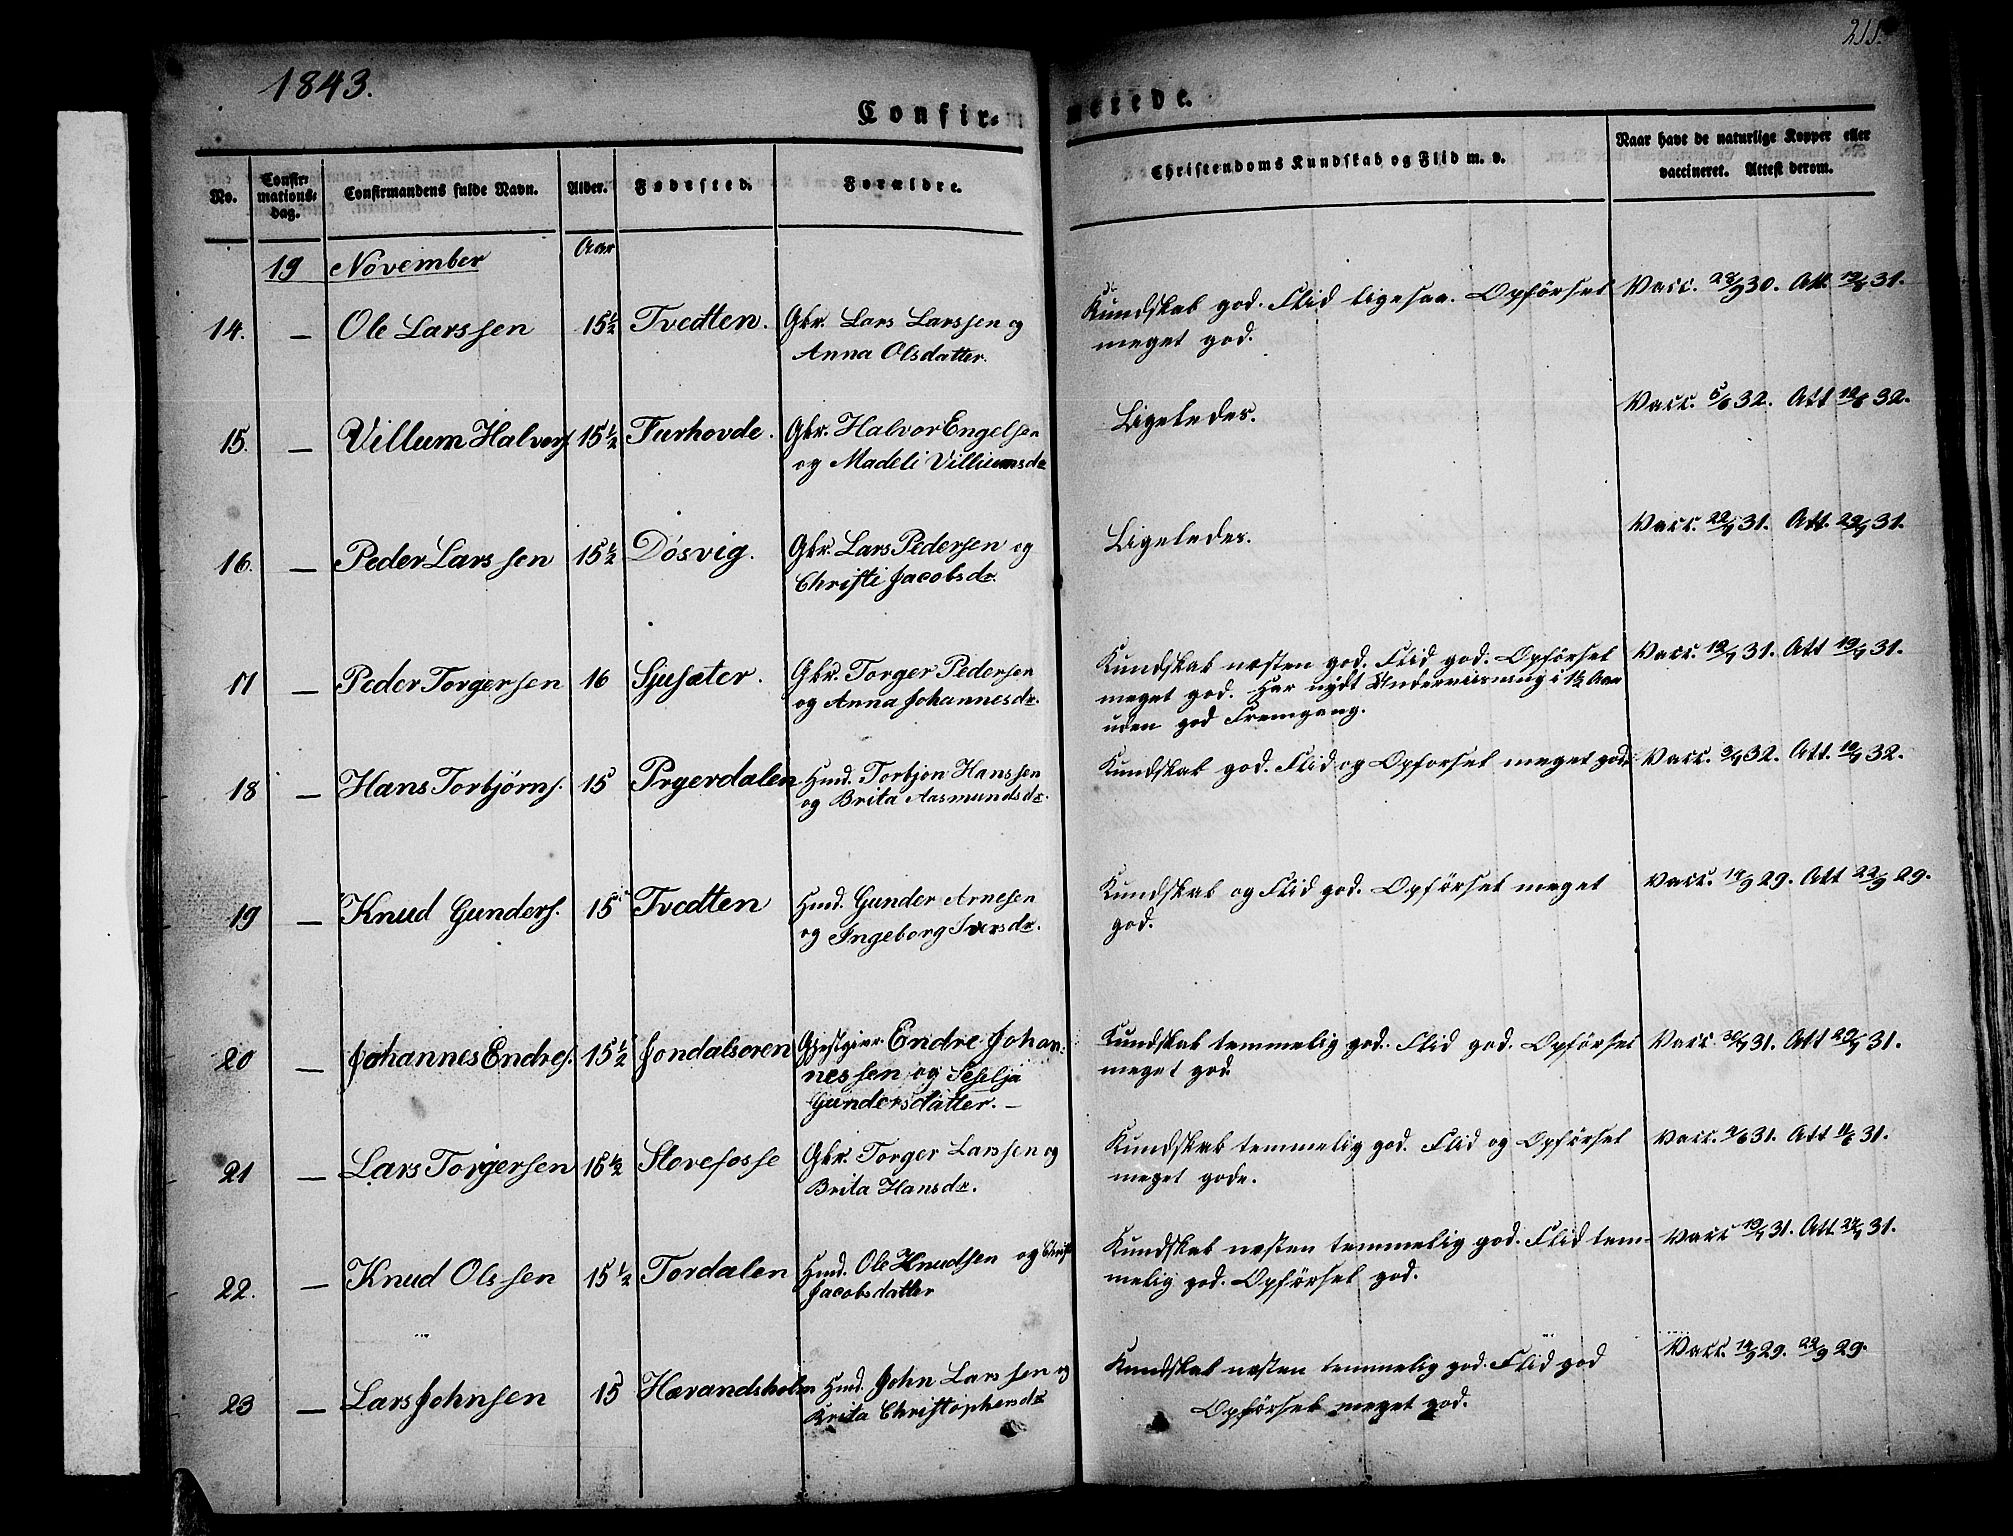 1843.
211.
Confir-
merede.
No.
Confir-
mations-
dag.
Confirmandens fulde Navn.
Alder.
Fødested.
Forældre.
Christendoms Kundskab og Flid m. v.
Naar have de naturlige Kopper eller
vaccineret. Attest derom.
19 November Aar
14. — Ole Larssen 15½ Tvedten. Gbr. Lars Larssen og
Anna Olsdatter.
Kundskab god. Flid ligesaa. Opførsel
meget god.
Vacc. 30. Att. 31.
15. — Villum Halvors. 15½ Furhovde. Gbr. Halvor Engelsen
og Madeli Villiumsdr.
Ligeledes.
Vacc. 5/6 32. Att 12/6 32.
16. — Peder Larssen 15½ Døsvig. Gbr. Lars Pedersen og
Christi Jacobsdr.
Ligeledes.
Vacc. 31. Att. 31.
17 — Peder Torgersen 16 Sjusæter. Gbr. Torger Pedersen
og Anna Johannesdr.
Kundskab næsten god. Flid god. Opførsel
meget god. Har nydt Underviisning i 1½ Aar
uden god Fremgang.
Vacc. 31. Att 31.
18 — Hans Torbjørns. 15 Prgerdalen Hmd. Torbjon Hanssen
og Brita Aasmundsdr.
Kundskab god. Flid og Opførsel meget god.
Vacc. 32. Att. 32.
19 — Knud Gunders. 15 Tvedten Hmd. Gunder Arnesen
og Ingeborg Iversdr.
Kundskab og Flid god. Opførsel meget
god.
Vacc. 14/9 29. Att 22/9 29.
20 — Johannes Endres. 15½ Jondalsøren Gjestgiver Endre Johan-
nessen og Seselja
Gundersdatter. —
Kundskab temmelig god. Flid god. Opførsel
meget god
Vacc. 31. Att 31.
21 — Lars Torgersen 16½ Storefosse Gbr. Torger Larssen og
Brita Hansdr.
Kundskab temmelig god. Flid og Opførsel
meget gode.
Vacc. 4/6 31. Att 11/6 31.
22. — Knud Olssen 15½ Tordalen Hmd. Ole Knudsen og Christi
Jacobsdatter
Kundskab næsten temmelig god. Flid tem-
melig god. Opførsel god.
Vacc 31. Att 31.
23 — Lars Johnsen 15 Hærandsholm Hmd. John Larssen og
Brita Christophersdr.
Kundskab næsten temmelig god. Flid god
Opførsel meget god.
Vacc. 14/9 29. 22/9 29.